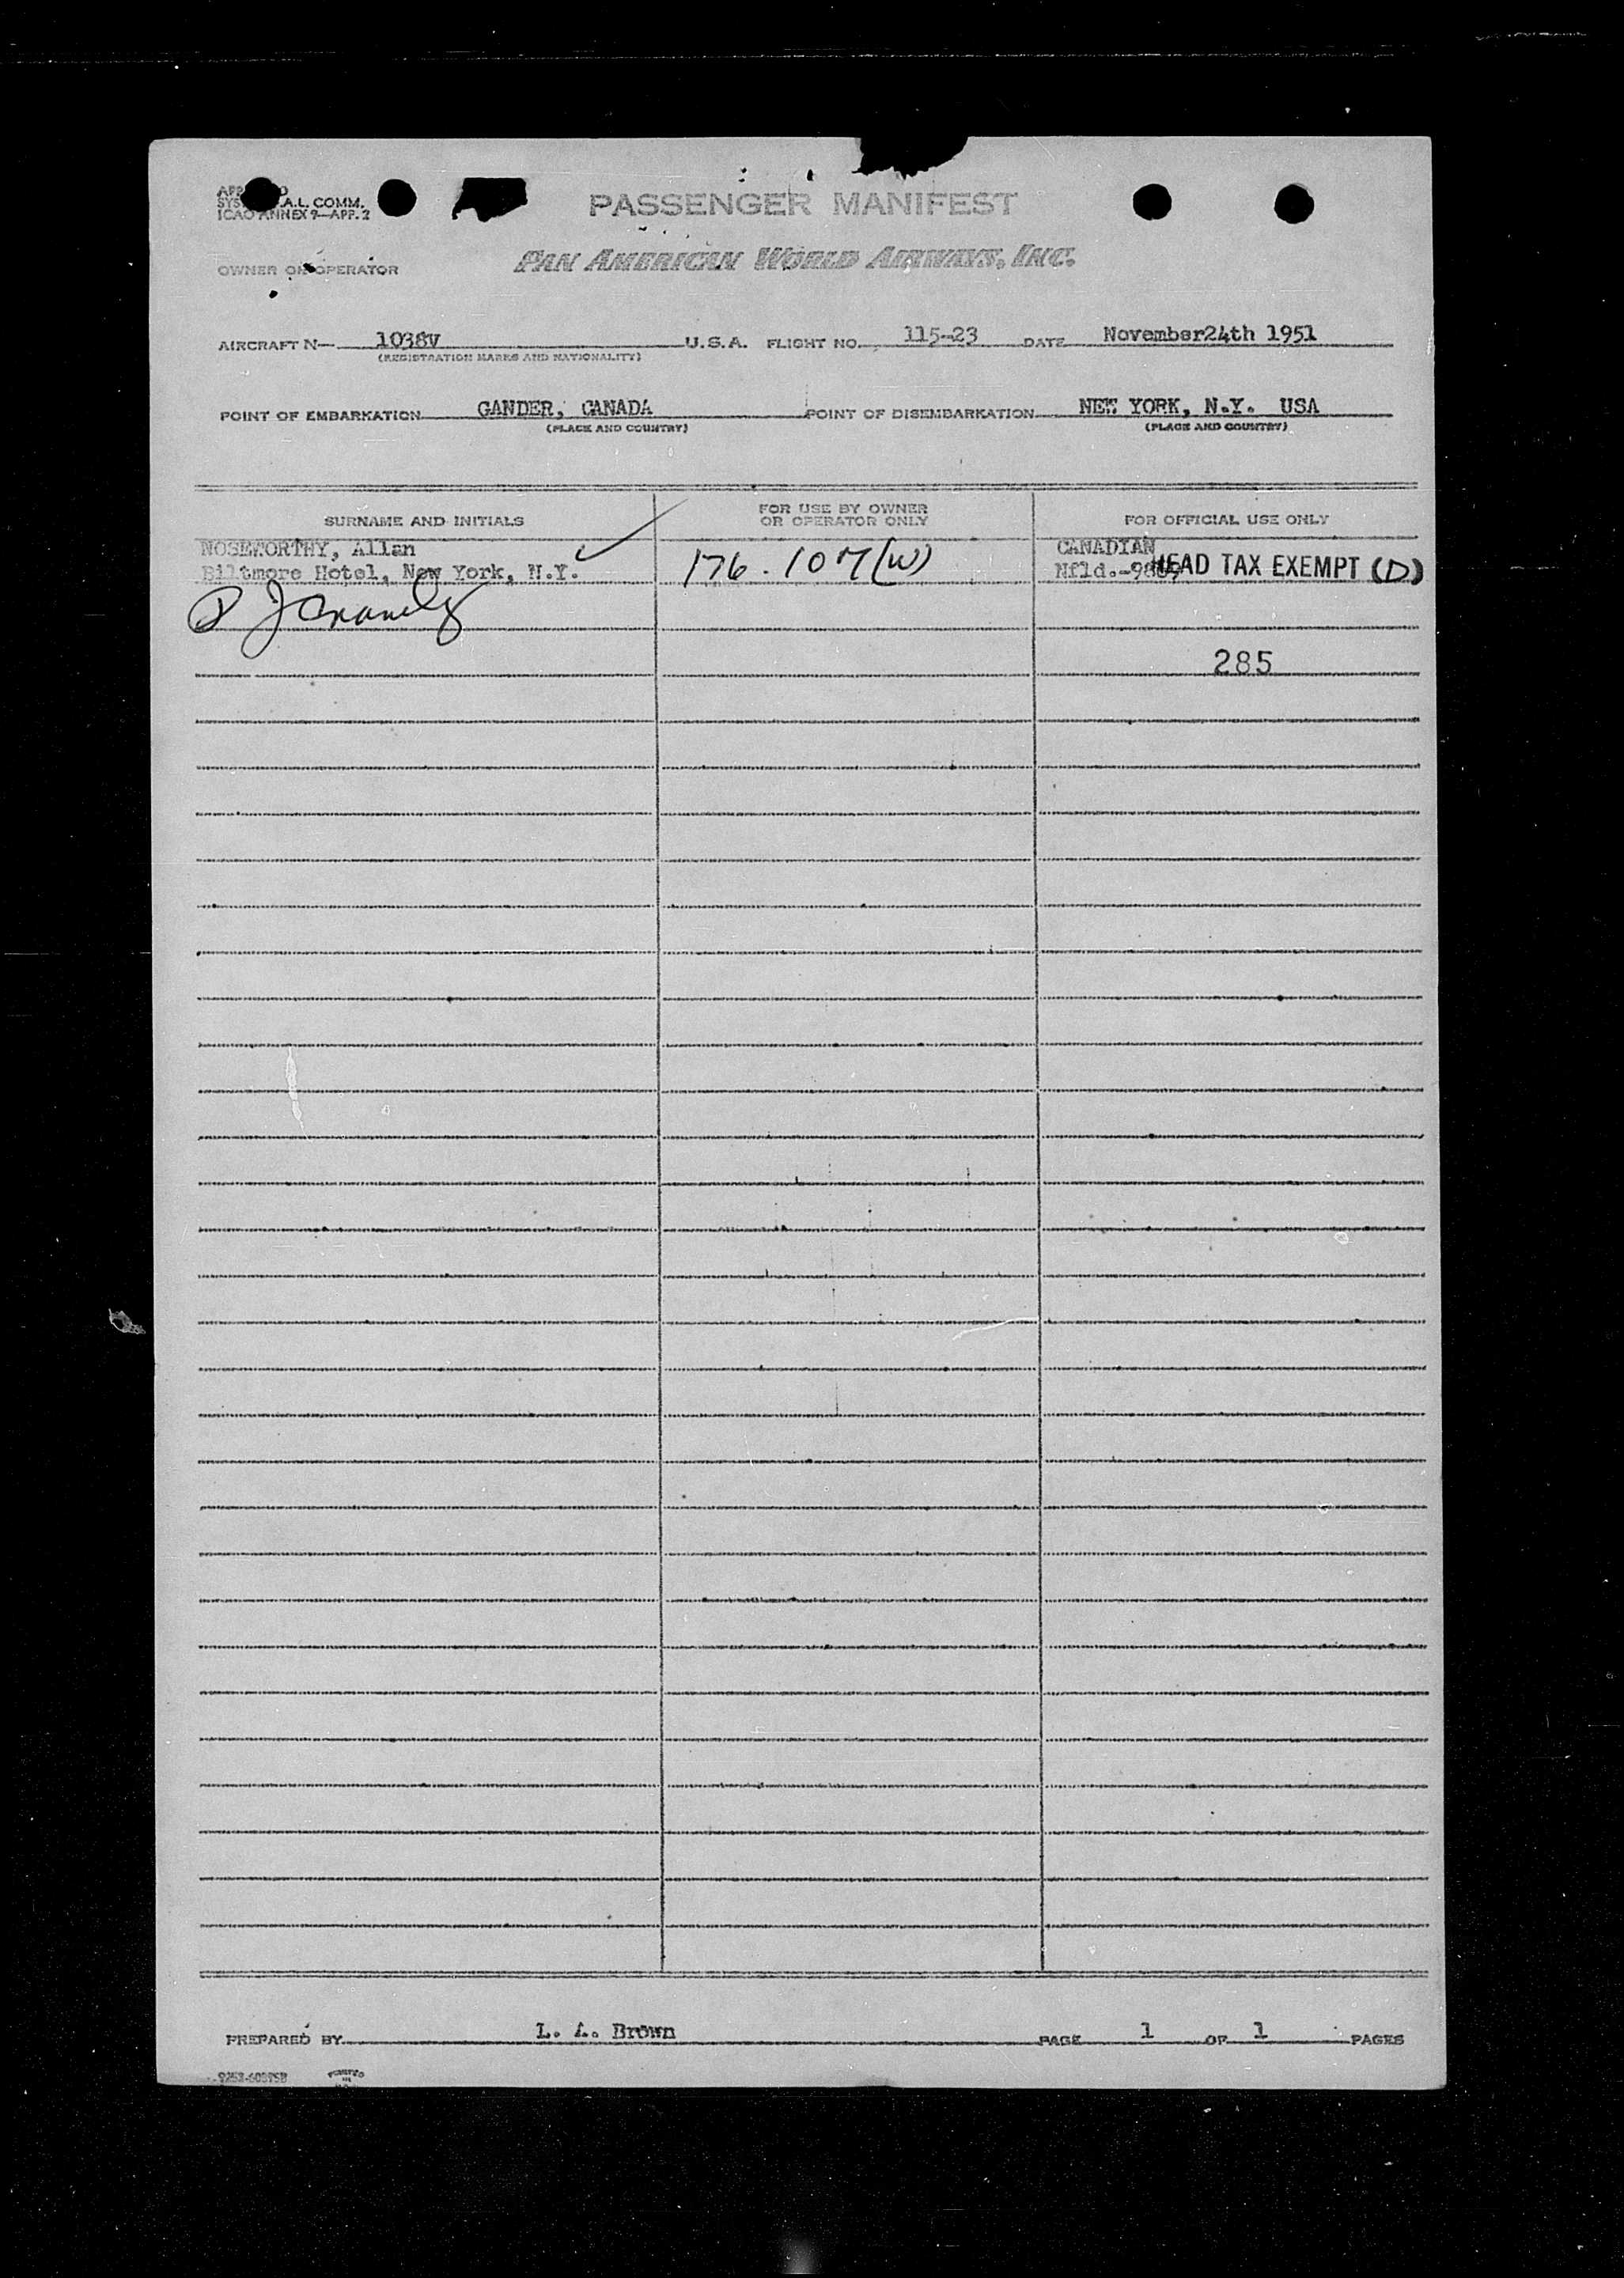 PASSENGER MANIFEST
A.L. COMM.
ICAO ANNEX 9—APP. 2
OWNER OR OPERATOR
PAN AMERICAN WORLD AIRWAYS, INC.
AIRCRAFT N— 1038V U.S.A. FLIGHT NO. 115-23 DATE November24th 1951
(REGISTRATION MARKS AND NATIONALITY)
POINT OF EMBARKATION GANDER, CANADA POINT OF DISEMBARKATION NEW YORK, N.Y. USA
(PLACE AND COUNTRY) (PLACE AND COUNTRY)
SURNAME AND INITIALS FOR USE BY OWNER OR OPERATOR ONLY FOR OFFICIAL USE ONLY
NOSEWORTHY, Allan CANADIAN
Biltmore Hotel, New York, N.Y. 176.107(W) Nfld. HEAD TAX EXEMPT (D)
285
PREPARED BY L. A. Brown PAGE 1 OF 1 PAGES